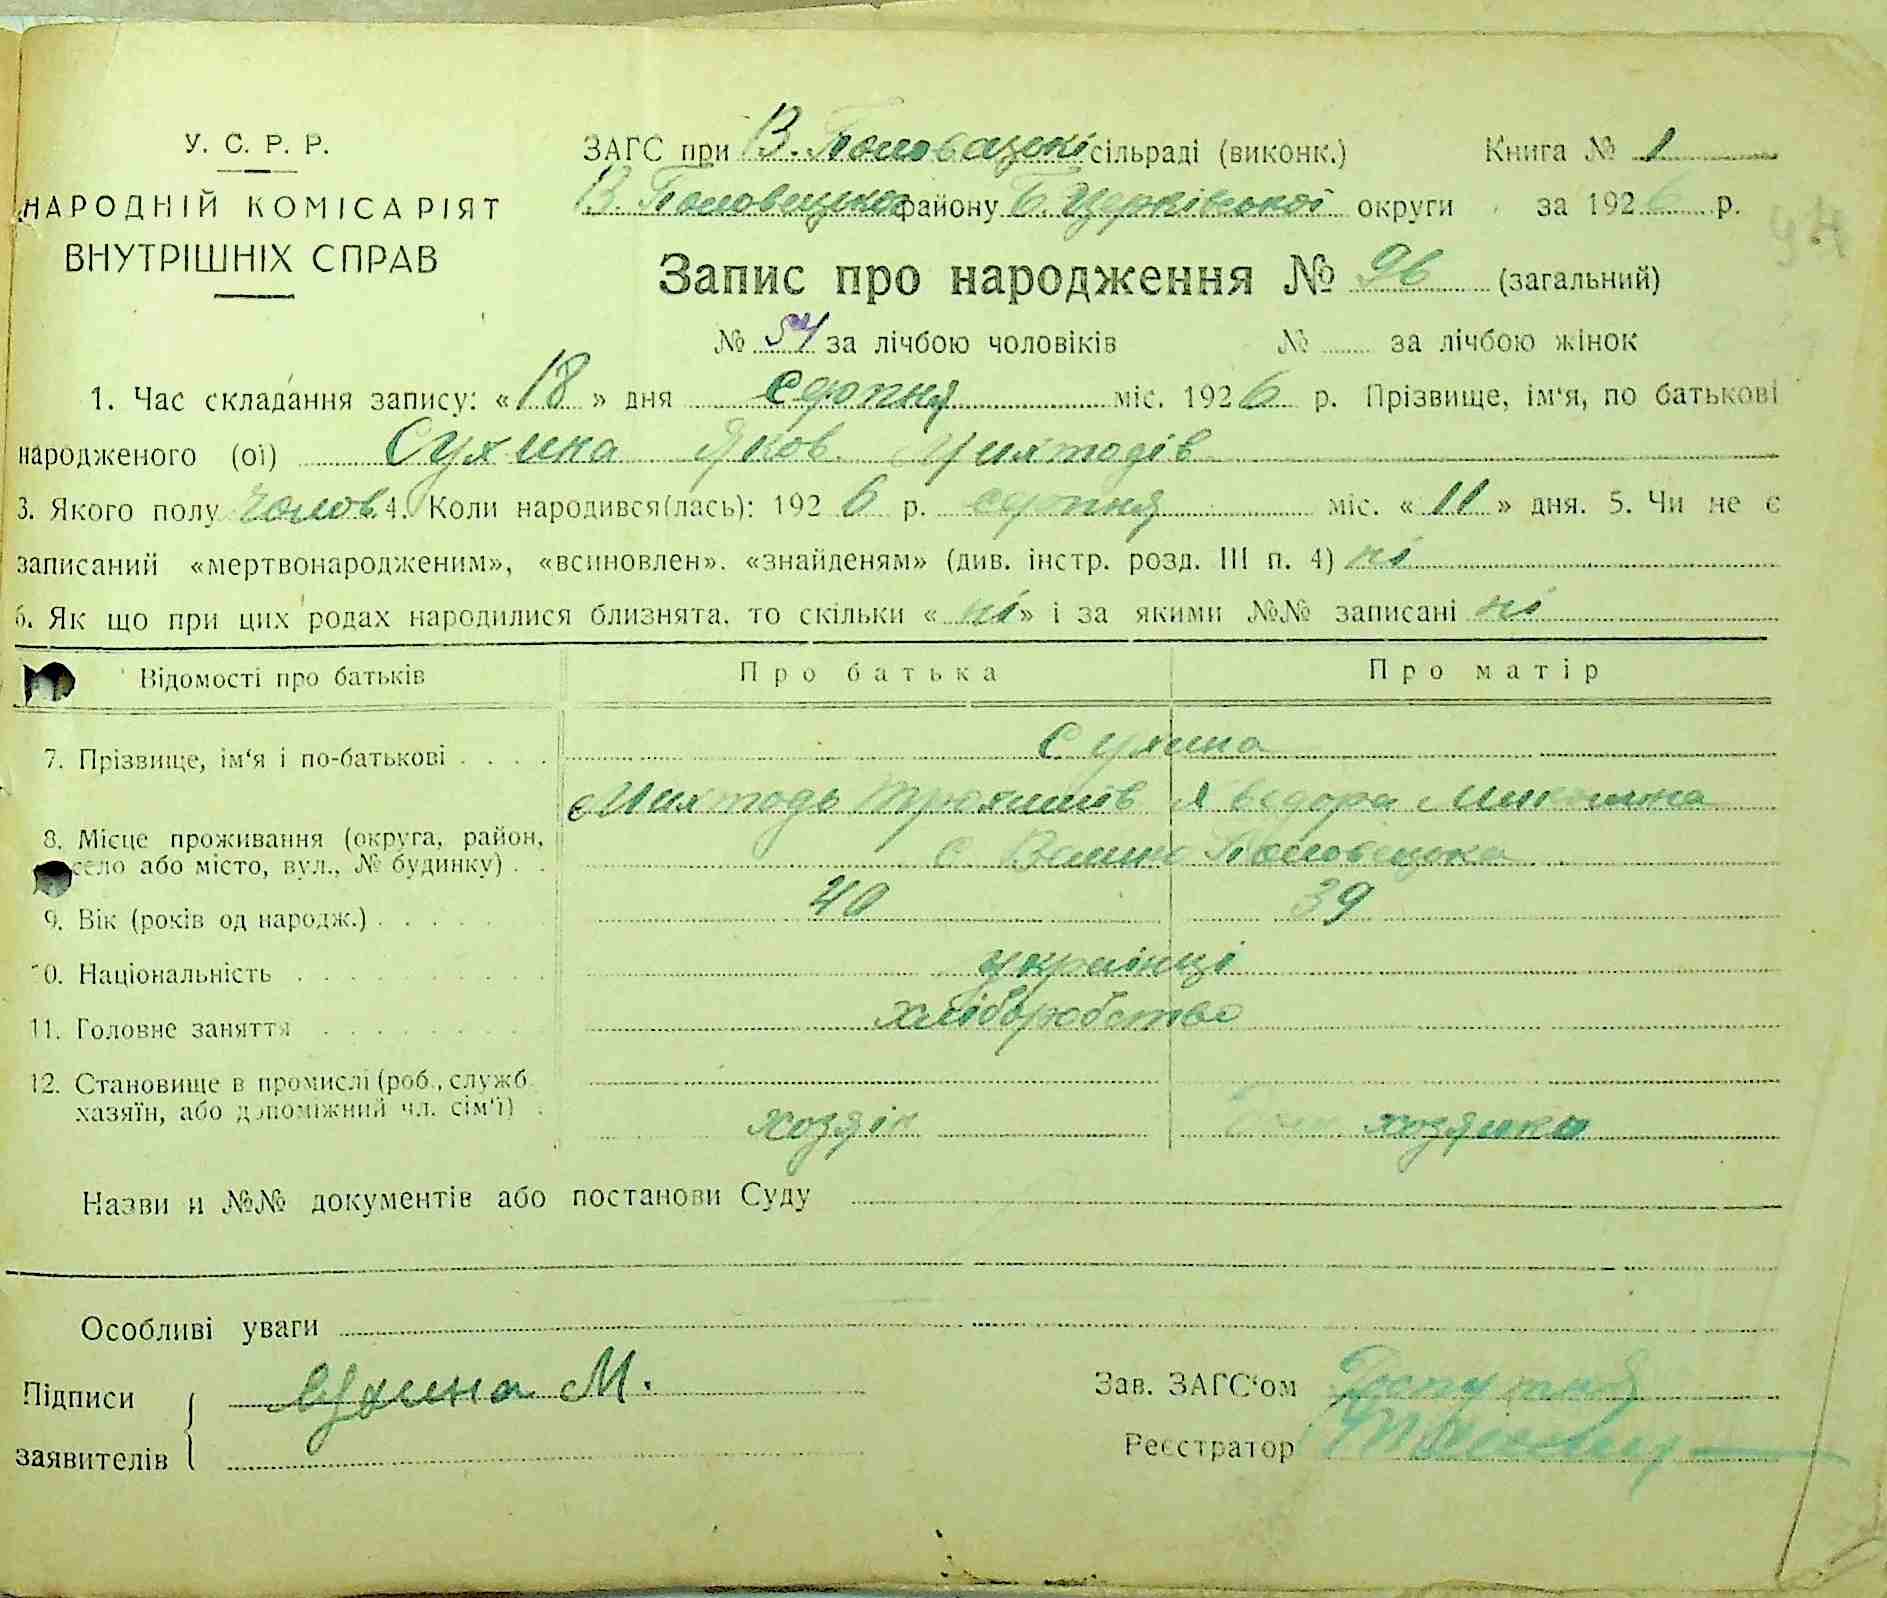 У. С. Р. Р.
НАРОДНІЙ КОМІСАРІЯТ
ВНУТРІШНІХ СПРАВ
ЗАГС при В. Половецькі сільраді (виконк.) Книга № 1
В. Половецького району Б. Церківської округи за 1926 р.
Запис про народження № 96 (загальний)
№ 54 за лічбою чоловіків № за лічбою жінок
1. Час складання запису: «18» дня серпня міс. 1926 р. Прізвище, ім'я, по батькові
народженого (ої) Сухина Яков
3. Якого полу чолов. 4. Коли народився(лась): 1926 р. серпня міс. «11» дня. 5. Чи не є
записаний «мертвонародженим», «всиновлен». «знайденям» (див. інстр. розд. III п. 4) ні
6. Як що при цих родах народилися близнята, то скільки «ні» і за якими №№ записані ні
Відомості про батьків Про батька Про матір
7. Прізвище, ім'я і по-батькові Сухина
Явдора
8. Місце проживання (округа, район,
село або місто, вул., № будинку) с. Велико Половецьке
9. Вік (років од народж.) 40 39
10. Національність українці
11. Головне заняття хліборобство
12. Становище в промислі (роб., служб.
хазяїн, або допоміжний чл. сім'ї) хозяін хозяйки
Назви и №№ документів або постанови Суду
Особливі уваги
Підписи Сухина М.
заявителів
Зав. ЗАГС'ом
Реєстратор